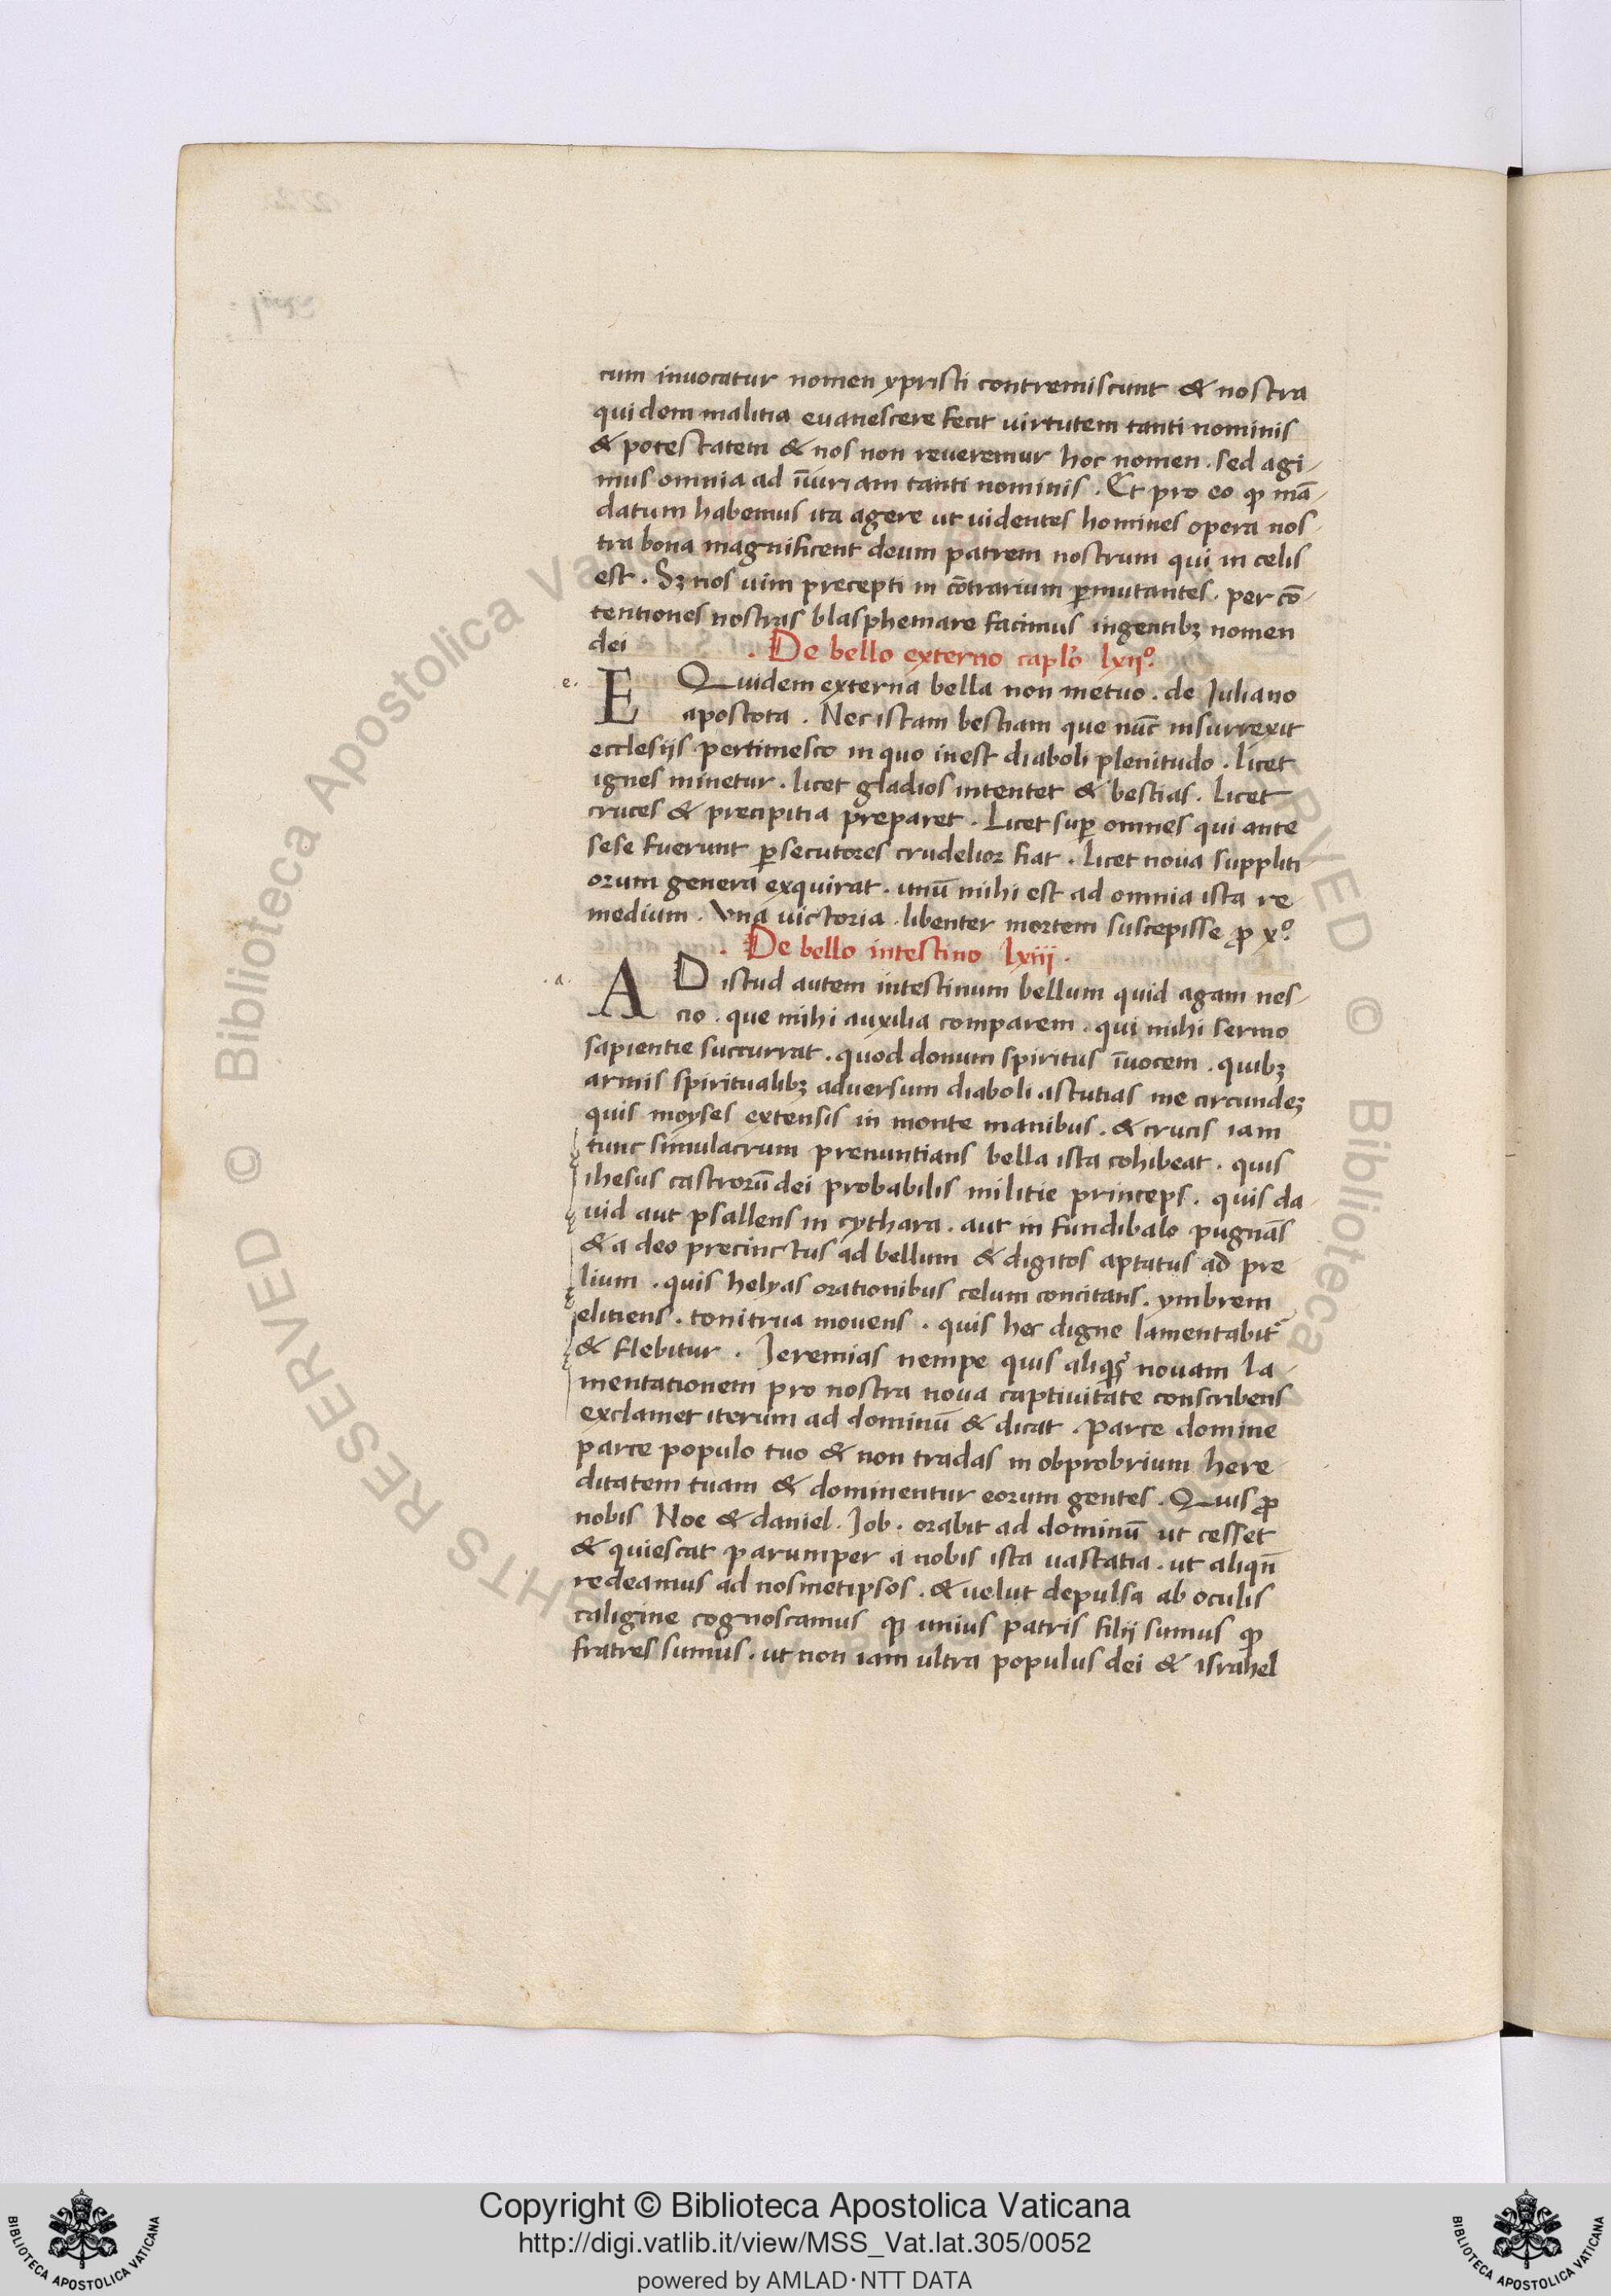 cum inuocatur nomen xpristi contremiscunt & nostra
quidem malitia euanescere fecit uirtutem tanti nominis
& potestatem & nos non reueremur hoc nomen . sed agi-
mus omnia ad iīuriam tanti nominis . Et pro eo ꝙ mā-
datum habemus ita agere ut uidentes homines opera nos-
tra bona magnificent deum patrem nostrum qui in celis
est . Sꝫ nos uim precepti in cōtrarium ꝑmutantes . per cō-
tentiones nostras blasphemare facimus ingentibꝫ nomen
dei . De bello externo caplo lxijº.
e. E Quidem externa bella non metuo . de Juliano
apostota . Nec istam bestiam que nūc insurrexit
ecclesijs pertimesco in quo inest diaboli plenitudo . licet
ignes minetur . licet gladios intentet & bestias . licet
cruces & precipitia preparet . Licet suꝑ omnes qui ante
sese fuerunt ꝑsecutores crudelior fiat . licet noua suppliti
orum genera exquirat . unū mihi est ad omnia ista re-
medium . Vna uictoria . libenter mortem suscepisse ꝓ xº.
. De bello intestino lxiij .
.a. AD istud autem intestinum bellum quid agam nes-
cio . que mihi auxilia comparem . qui mihi sermo
sapientie succurrat . quod donum spiritus īuocem . quibꝫ
armis spiritualibꝫ aduersum diaboli astutias me circundeꝫ
quis moyses extensis in monte manibus . & crucis iam
tunc simulacrum prenuntians bella ista cohibeat . quis
ihesus castrorū dei probabilis militie princeps . quis da-
uid aut psallens in cythara . aut in fundibalo pugnās
& a deo precinctus ad bellum & digitos aptatus ad pre
lium . quis helyas orationibus celum concitans . ymbrem
elitiens . tonitrua mouens . quis hec digne lamentabit
& flebitur . Jeremias nempe quis novam la-
mentationem pro nostra noua captiuitate conscribens
exclamet iterum ad dominū & dicat . Parce domine
parce populo tuo & non tradas in obprobrium here-
ditatem tuam & dominentur eorum gentes . Quis ꝓ
nobis Noe & daniel . Job . orabit ad dominū ut cesset
& quiescat parumper a nobis ista uastatia . ut aliqn̄
redeamus ad nosmetipsos . & uelut depulsa ab oculis
caligine cognoscamus ꝙ unius patris filij sumus ꝙ
fratres sumus . ut non iam ultra populus dei & israhel
© Biblioteca Apostolica Vaticana
Copyright © Biblioteca Apostolica Vaticana
http://digi.vatlib.it/view/MSS_Vat.lat.305/0052
powered by AMLAD·NTT DATA
BIBLIOTECA APOSTOLICA VATICANA
BIBLIOTECA APOSTOLICA VATICANA